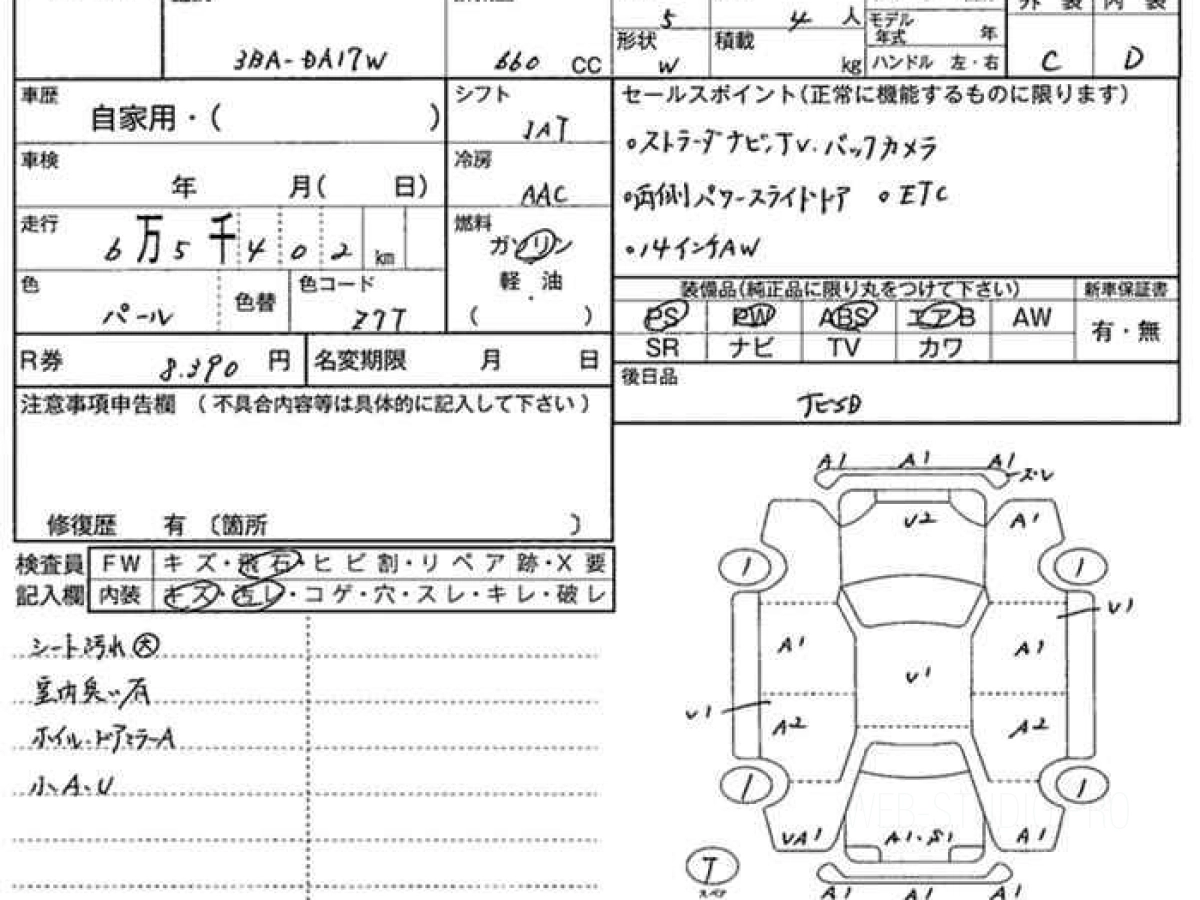 外 装 内 装
5 4 人 モデル年式 年
3BA-DA17W 660 CC
形状 W 積載 kg ハンドル 左・右 C D
車歴 自家用・( )
シフト IAT
セールスポイント(正常に機能するものに限ります)
。ストラーダナビ,TV.バックカメラ
車検 年 月( 日)
冷房 AAC
。両側パワースライドドア 。ETC
走行 6万5千402km
燃料 ガソリン
。14インチAW
軽 油
( )
色 パール 色替 色コード Z7T
装備品(純正品に限り丸をつけて下さい) 新車保証書
PS PW ABS エアB AW 有・無
SR ナビ TV カワ
R券 8.390 円 名変期限 月 日
後日品
注意事項申告欄 (不具合内容等は具体的に記入して下さい)
修復歴 有 〔箇所 〕
検査員 FW キズ・飛石・ヒビ割・リペア跡・X要
記入欄 内装 キズ・汚レ・コゲ・穴・スレ・キレ・破レ
シート汚れ大
室内臭い有
ホイル・ドアミラーA
小、A、U
A1 A1 A1 ズレ
U2 A1
1 1
U1
A1 A1
U1
U1
A2 A2
1 1
UA1 A1・S1 A1
T
スペア
A1 A1 A1
WEB-STUDIO.PRO